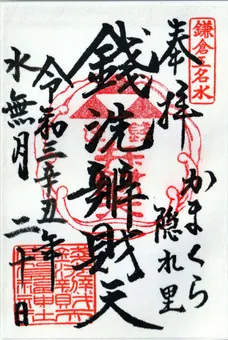 鎌倉五名水
奉拝
かまくら
隠れ里
銭洗辨財天
令和三辛丑年
水無月 二十日